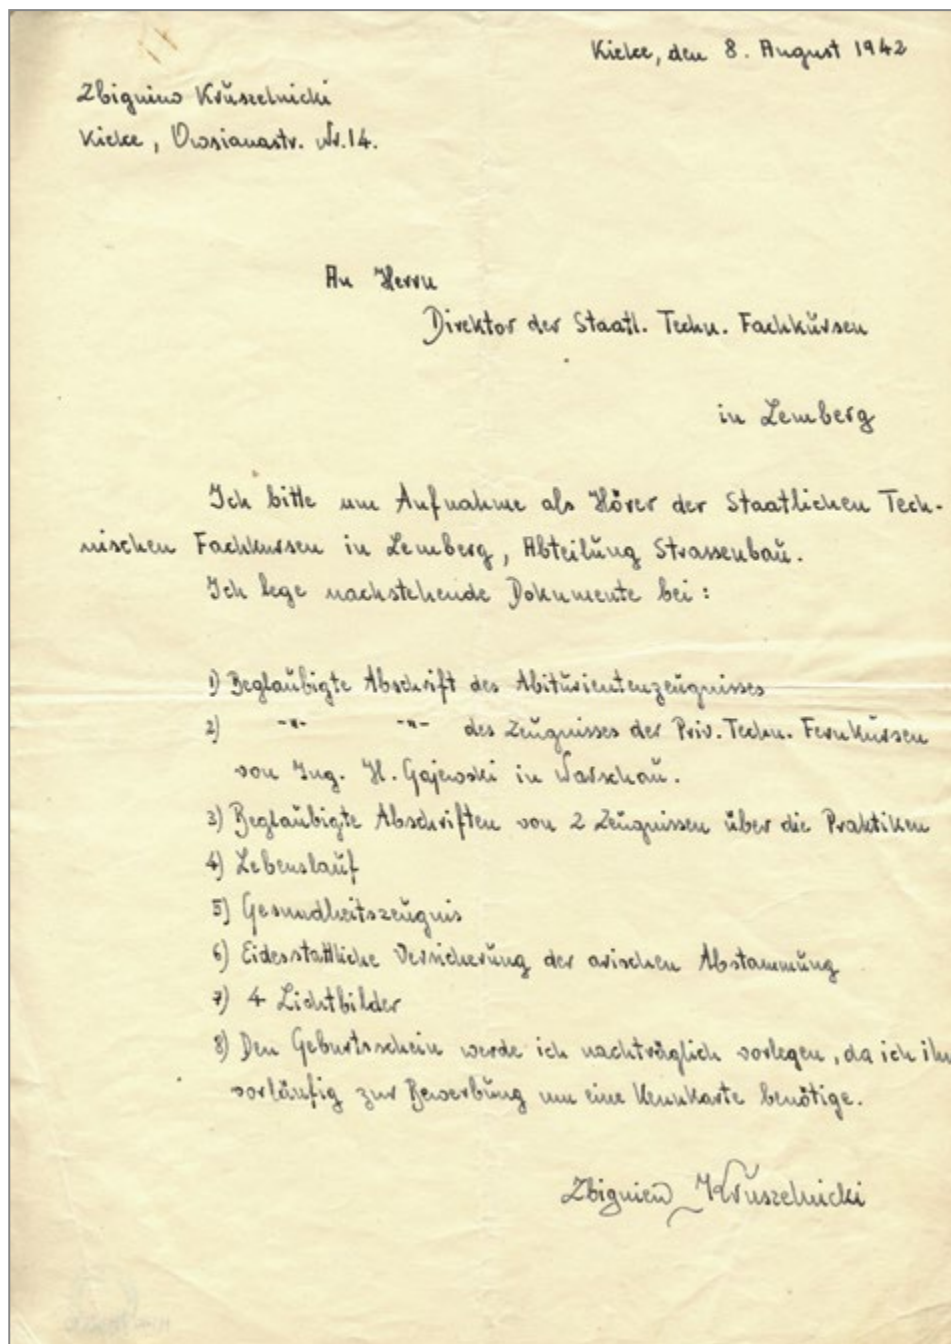 Kielce, den 8. August 1942
Zbigniew Kruszelnicki
Kielce, Owsianastr. Nr. 14.
An Herrn
Direktor der Staatl. Techn. Fachkursen
in Lemberg
Ich bitte um Aufnahme als Hörer der Staatlichen Tech-
nischen Fachkursen in Lemberg, Abteilung Strassenbau.
Ich lege nachstehende Dokumente bei:
1) Beglaubigte Abschrift des Abiturientenzeugnisses
2) -"- -"- des Zeugnisses der Priv. Techn. Fernkursen
von Ing. H. Gajewski in Warschau.
3) Beglaubigte Abschriften von 2 Zeugnissen über die Praktiken
4) Lebenslauf
5) Gesundheitszeugnis
6) Eidesstattliche Versicherung der arischen Abstammung
7) 4 Lichtbilder
8) Den Geburtsschein werde ich nachträglich vorlegen, da ich ihn
vorläufig zur Bewerbung um eine Kennkarte benötige.
Zbigniew Kruszelnicki